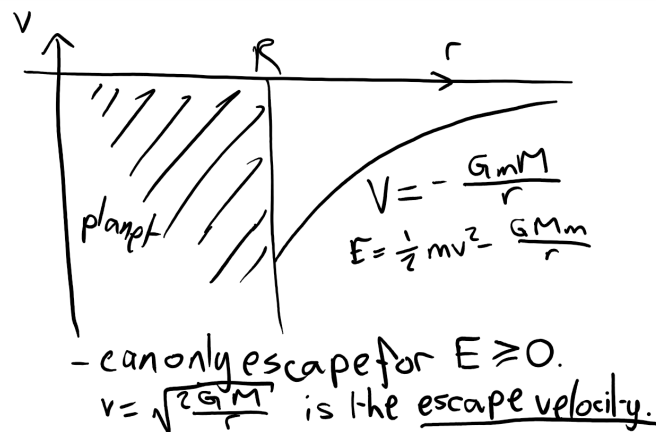 V
R
r
planet
V = - GmM/r
E = ½ mv² - GMm/r
- can only escape for E ≥ 0.
v = √(2GM/r) is the escape velocity.